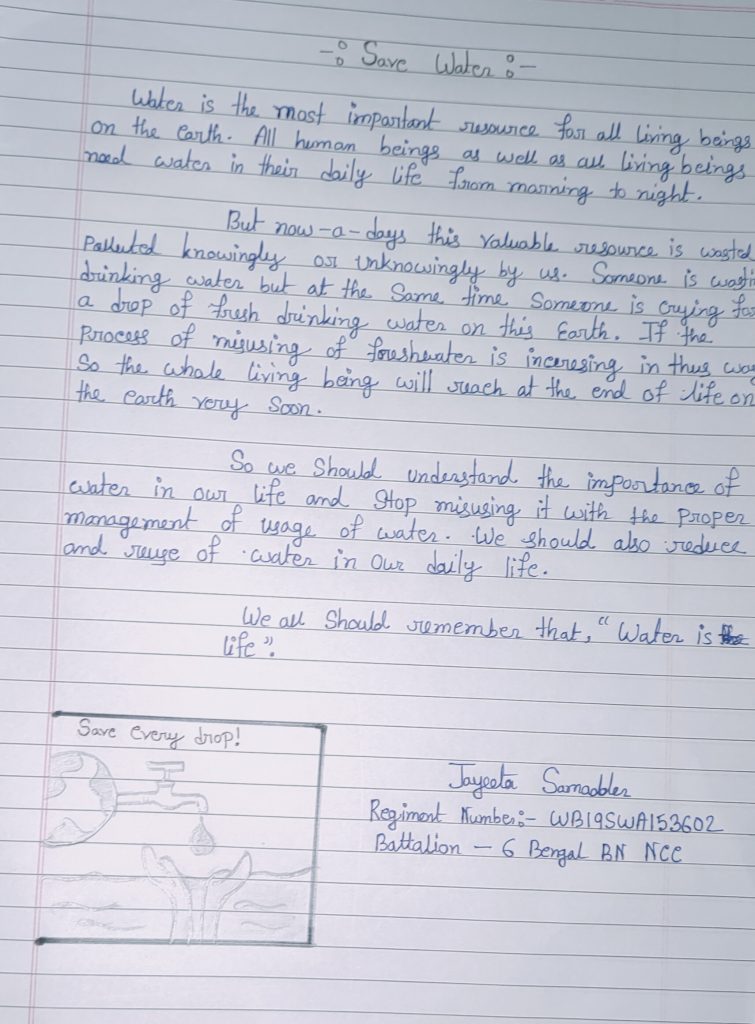 -: Save Water :-
Water is the most important resource for all living beings
on the Earth. All human beings as well as all living beings
need water in their daily life from morning to night.
But now-a-days this valuable resource is wasted
Polluted knowingly or unknowingly by us. Someone is
drinking water but at the same time someone is crying for
a drop of fresh drinking water on this Earth. If the
Process of misusing of freshwater is inceresing in thus way
So the whole living being will reach at the end of life on
the earth very soon.
So we should understand the importance of
water in our life and stop misusing it with the proper
management of usage of water. We should also reduce
and reuse of water in our daily life.
We all should remember that, "Water is
life".
Save every drop!
Jayeeta Samadder
Regiment Number:- WB19SWA153602
Battalion - 6 Bengal BN NCC